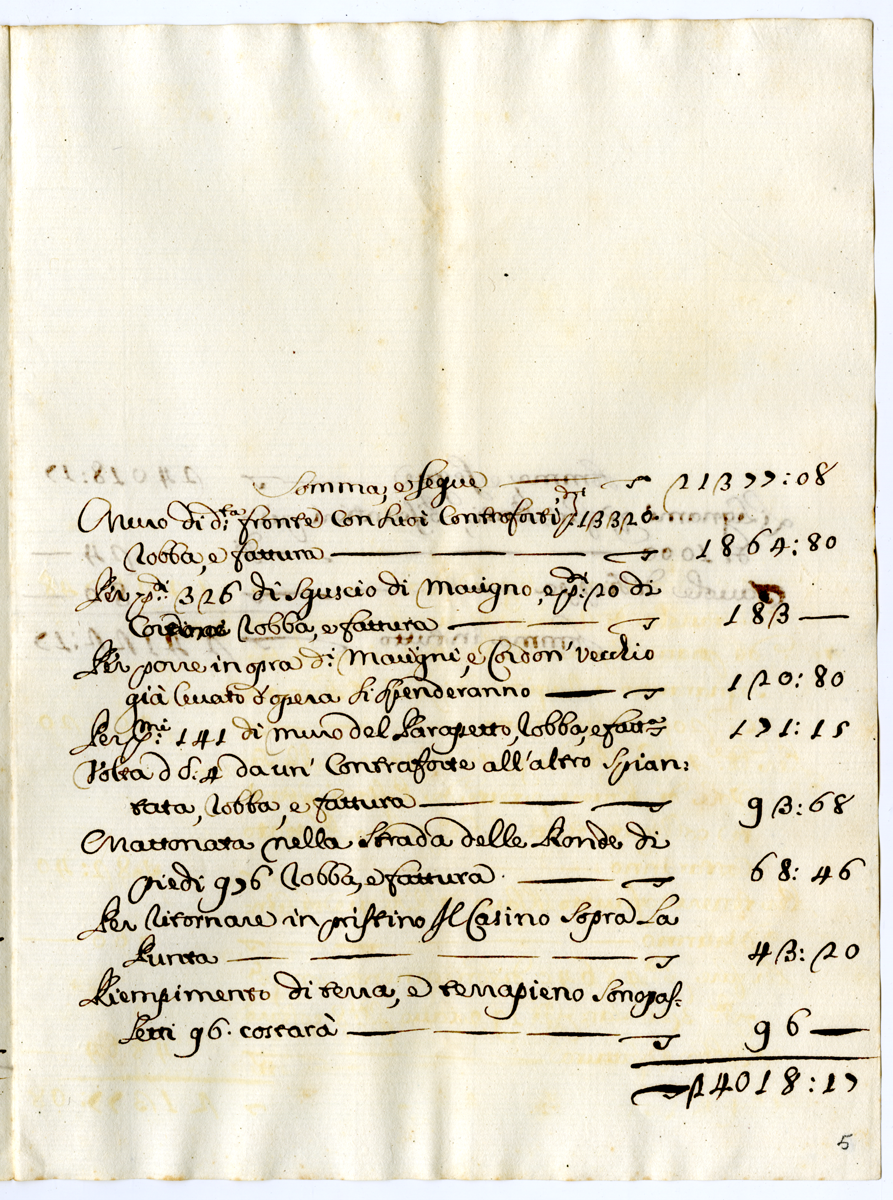 Somma, e segue — 21377:08
Muro di d:ta fronte con suoi Controforti p:di 1332
robba, e fattura — 1864:80
Per p:di 326 di Sguscio di Macigno, e p:di 20 di
Cordone robba, e fattura — 183 —
Per porre in opra d:i Macigni, e Cordon' vecchio
già levato d'opera si spenderanno — 120:80
Per p:mi 141 di muro del Parapetto, robba, e fatt:ra 171:15
Volta d 8:4 da un' Contraforte all'altro spian:
tata, robba, e fattura — 93:68
Mattonata nella Strada delle Ronde di
piedi 976 robba, e fattura — 68:46
Per ritornare in pristino Il Casino sopra La
Punta — 43:20
Riempimento di terra, e terrapieno sono pas:
setti 96. costarà — 96 —
24018:17
5